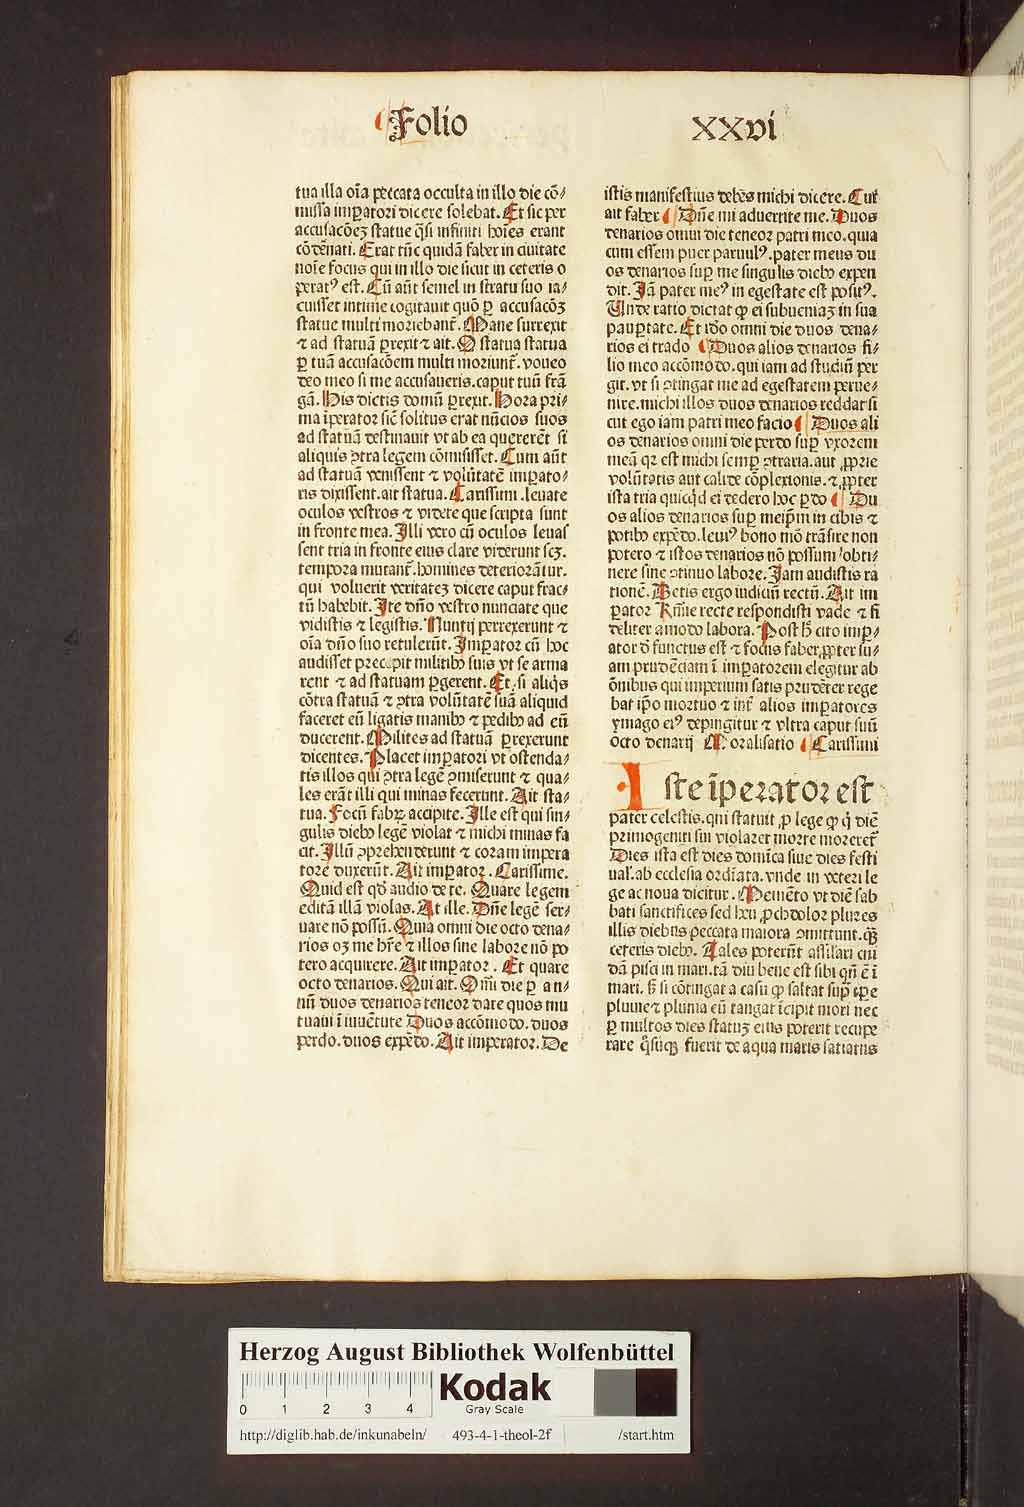 Folio
XXvi
tua illa oīa peccata occulta in illo die cō⸗
missa imꝑatori dicere solebat. Et sic per
accusacōeꝫ statue q̄si infiniti hoīes erant
cōdēnati. Erat tūc quidā faber in ciuitate
noīe focus qui in illo die sicut in ceteris o
peratꝰ est. Cū aūt semel in stratu suo ia⸗
cuisset intime cogitauit quō ꝑ accusacōꝫ
statue multi moriebant᷑. Mane surrexit
⁊ ad statuā ꝑrexit ⁊ ait. O statua statua
ꝑ tuā accusacōem multi moriunt᷑. voueo
deo meo si me accusaueris. caput tuū frā
gā. His dictis domū ꝑrexit. Hora pri⸗
ma īperator sic̄ solitus erat nūcios suos
ad statuā destinauit vt ab ea quererēt si
aliquis ꝯtra legem cōmisisset. Cum aūt
ad statuā venissent ⁊ volūtatē imꝑato⸗
ris dixissent. ait statua. Carissimi. leuate
oculos vestros ⁊ videte que scripta sunt
in fronte mea. Illi vero cū oculos leuas
sent tria in fronte eius clare viderunt scꝫ.
tempora mutant᷑. homines deteriorātur.
qui voluerit veritateꝫ dicere caput frac⸗
tū habebit. Ite dño vestro nunciate que
vidistis ⁊ legistis. Nuntij perrexerunt ⁊
oīa dño suo retulerūt. Imꝑator cū hoc
audisset precepit militibꝰ suis vt se arma
rent ⁊ ad statuam ꝑgerent. Et si aliq̇s
cōtra statuā ⁊ ꝯtra volūtatē suā aliquid
faceret eū ligatis manibꝰ ⁊ pedibꝰ ad eū
ducerent. Milites ad statuā ꝑrexerunt
dicentes. Placet imꝑatori vt ostenda⸗
tis illos qui ꝯtra legē ꝯmiserunt ⁊ qua⸗
les erāt illi qui minas fecerunt. Ait sta⸗
tua. Focū fabꝝ accipite. Ille est qui sin⸗
gulis diebꝰ legē violat ⁊ michi minas fa
cit. Illū ꝯprehenderunt ⁊ coram impera
tore duxerūt. Ait imꝑator. Carissime.
Quid est qd̓ audio de te. Quare legem
editā illā violas. At ille. Dñe legē ser⸗
uare nō possū. Quia omni die octo dena⸗
rios oꝫ me hr̄e ⁊ illos sine labore nō po
tero acquirere. Ait imꝑator. Et quare
octo denarios. Qui ait. Om̄i die ꝑ an⸗
nū duos denarios teneor dare quos mu
tuaui ī iuuētute Duos accōmodo. duos
perdo. duos expēdo. Ait imperator. De
istis manifestius debes michi dicere. Cui
ait faber Dñe mi aduertite me. Duos
denarios omni die teneor patri meo. quia
cum essem puer paruulꝰ. pater meus du
os denarios suꝑ me singulis diebꝰ expen
dit. Iā pater meꝰ in egestate est positꝰ.
Unde ratio dictat ꝙ ei subueniaꝫ in sua
pauꝑtate. Et id̓o omni die duos dena⸗
rios ei trado Duos alios denarios fi⸗
lio meo accōmodo. qui iam ad studiū per
git. vt si ꝯtingat me ad egestatem perue⸗
nire. michi illos duos denarios reddat si
cut ego iam patri meo facio Duos ali
os denarios omni die perdo suꝑ vxorem
meā qr est michi semꝑ ꝯtraria. aut ꝓprie
volūtatis aut calide cōplexionis. ⁊ ꝓpter
ista tria quicq̇d ei dedero hoc ꝑdo Du
os alios denarios suꝑ meip̄m in cibis ⁊
potibꝰ expēdo. leuiꝰ bono mō trāsire non
potero ⁊ istos denarios nō possum obti⸗
nere sine ꝯtinuo labore. Iam audistis ra
tionē. Detis ergo iudiciū rectū. Ait im
ꝑator Kr̄me recte respondisti vade ⁊ fi
deliter amodo labora. Post h̄ cito imꝑ⸗
ator d̓functus est ⁊ focus faber ꝓpter su⸗
am prudēciam ī imꝑatorem elegitur ab
ōnibus qui imperium satis prudēter rege
bat ip̄o mortuo ⁊ int̓ alios imꝑatores
ymago eiꝰ depingitur ⁊ vltra caput suū
octo denarij Moralisatio Carissimi
Iste īperator est
pater celestis. qui statuit ꝓ lege ꝙ q̇ diē
primogeniti sui violaret morte moreret᷑
Dies ista est dies domīca siue dies festi
ual̓. ab ecclesia ordīata. vnde in veteri le
ge ac noua dicitur. Memēto vt diē sab
bati sanctifices sed heu ꝓchdolor plures
illis diebus peccata maiora ꝯmittunt. qꝫ
ceteris diebꝰ. Tales poterūt assil̓ari cui
dā pisci in mari. tā diu bene est sibi qn̄ ē ī
mari. ſꝫ si cōtingat a casu ꝙ saltat suꝑ tꝑe
pluuie ⁊ pluuia eū tangat īcipit mori nec
ꝑ multos dies statuꝫ eius poterit recupe
rare q̊usqꝫ fuerit de aqua maris satiatus
Herzog August Bibliothek Wolfenbüttel
0 1 2 3 4
Kodak
Gray Scale
http://diglib.hab.de/inkunabeln/ 493-4-1-theol-2f /start.htm